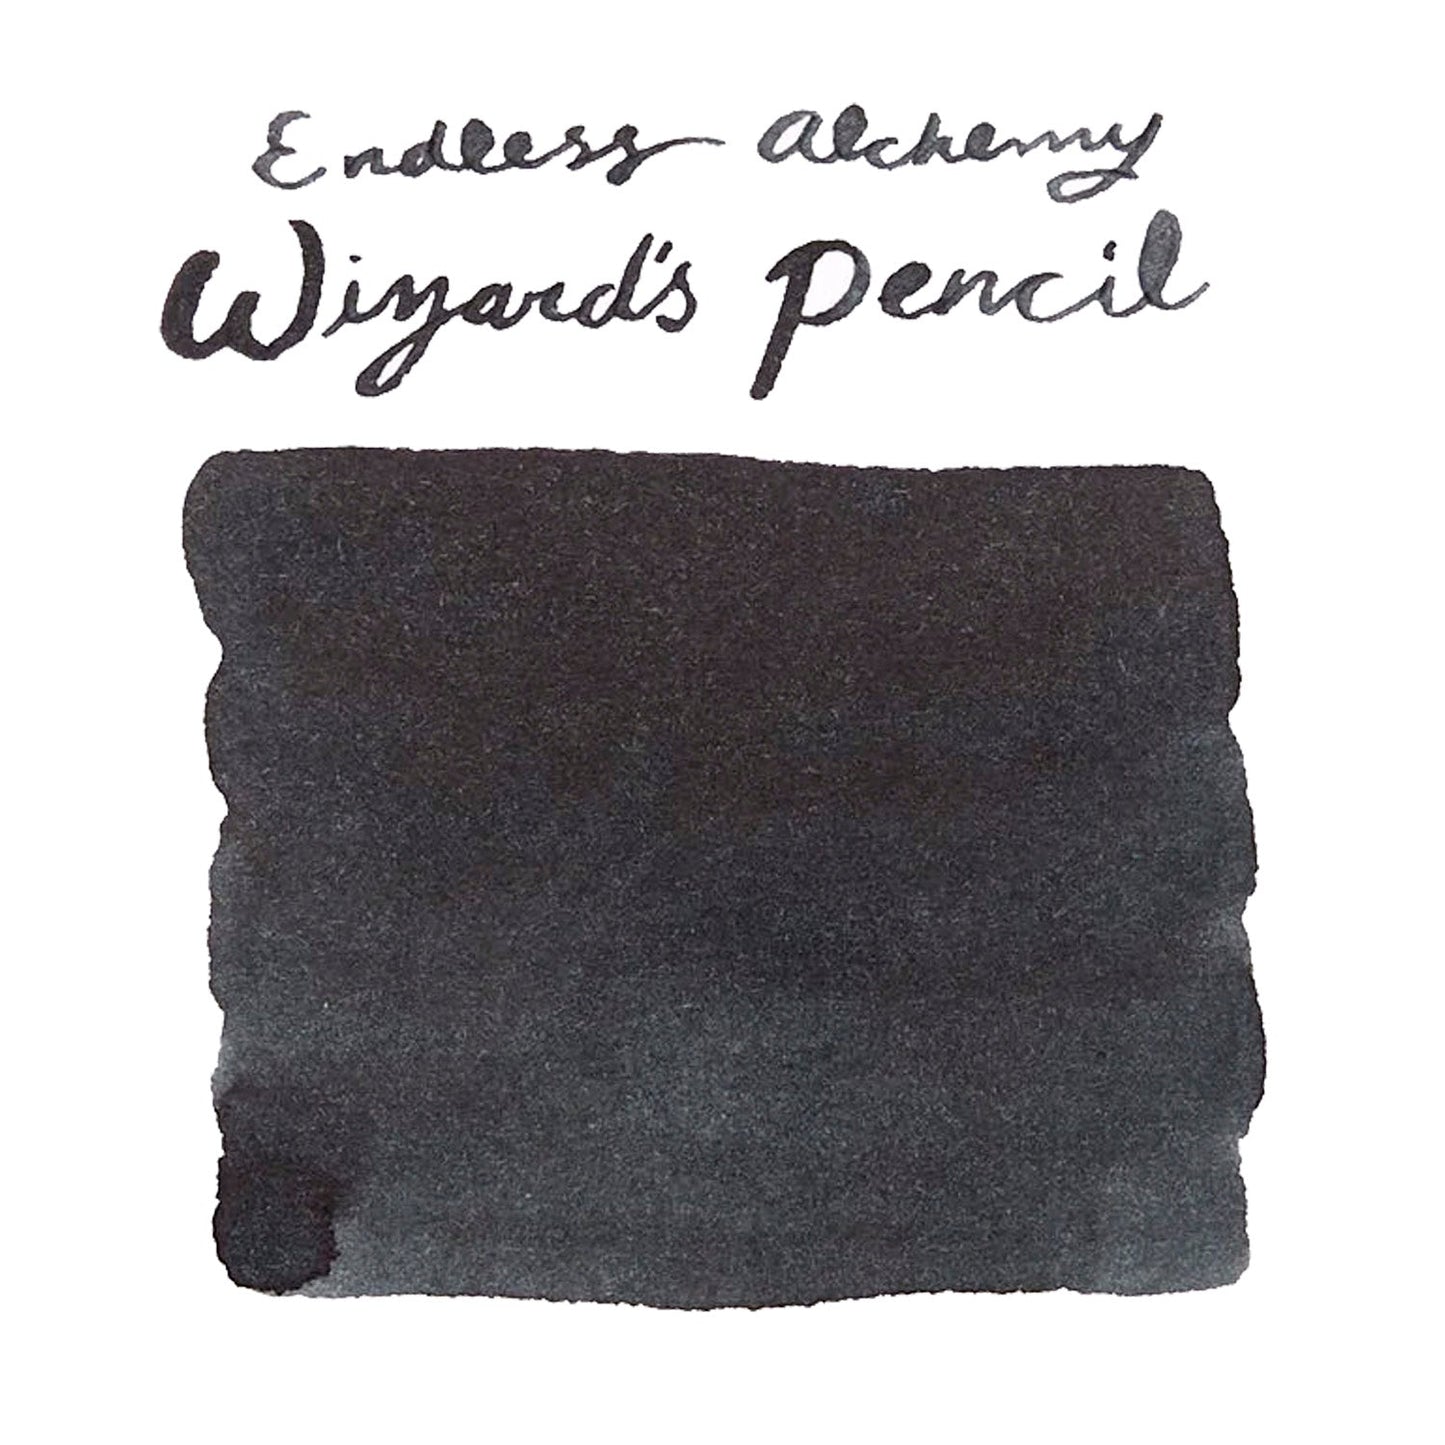 Endless Alchemy
Wizard's Pencil